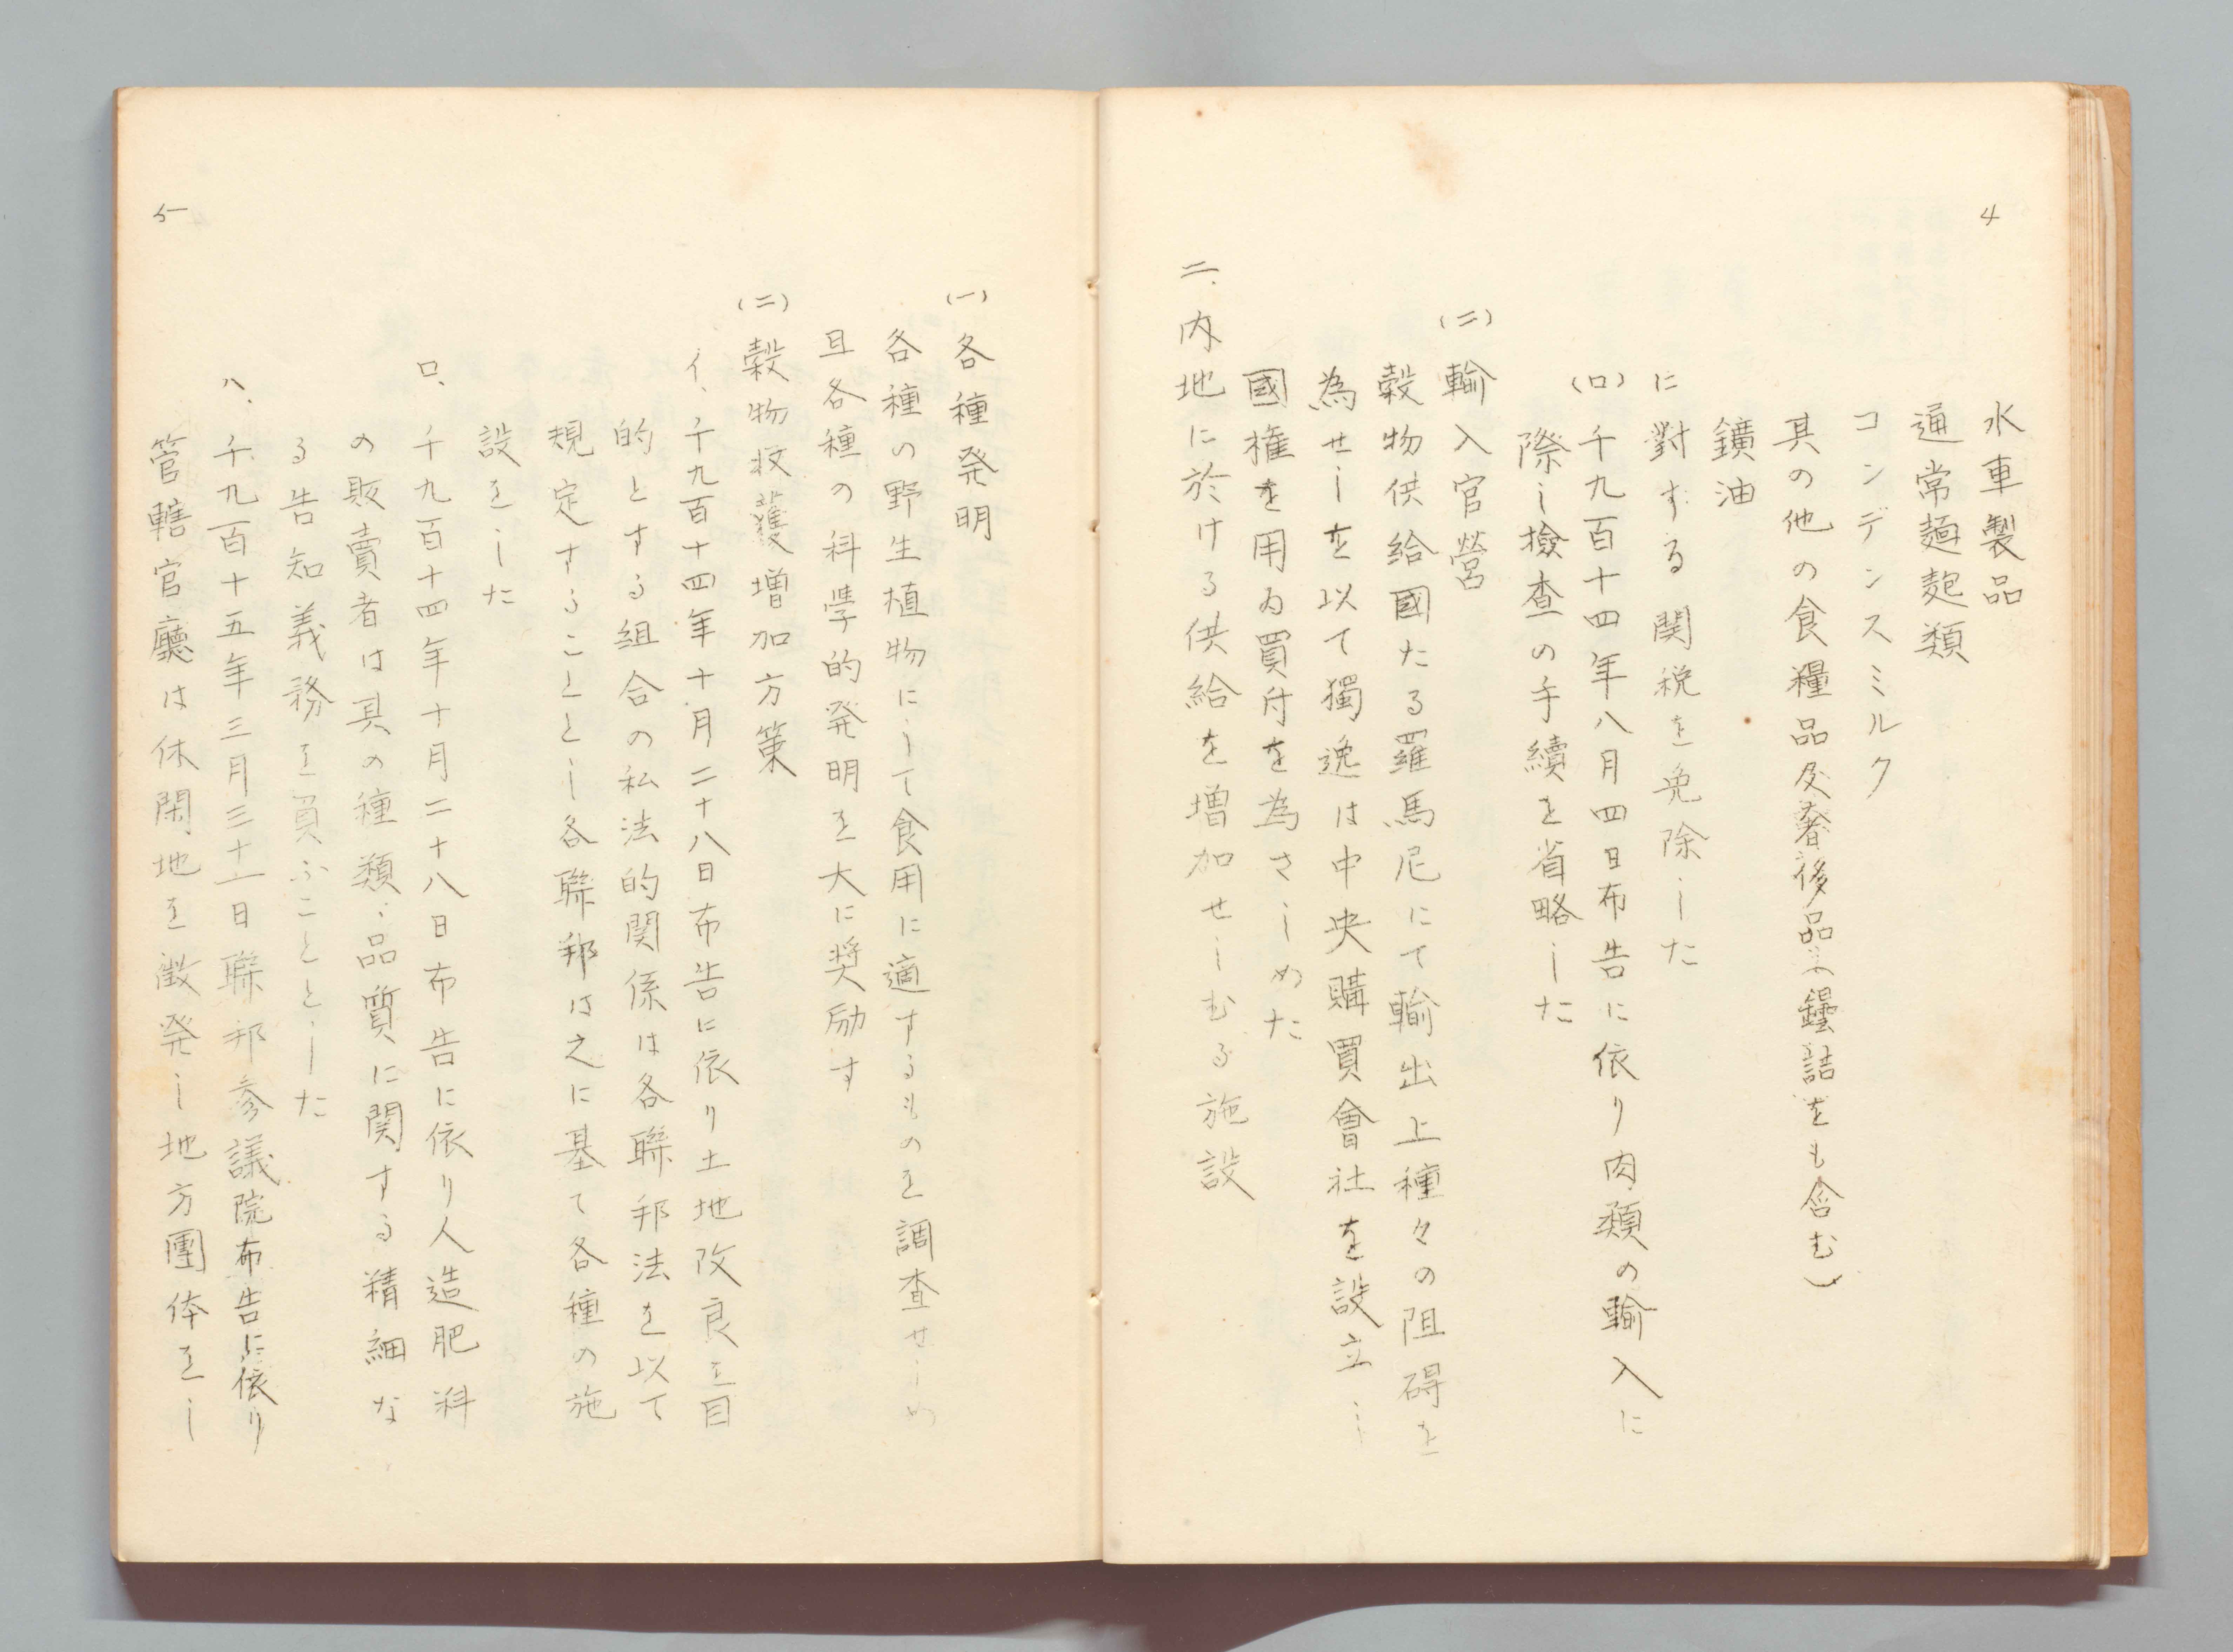 4
水車製品
通常麺麭類
コンデンスミルク
其の他の食糧品及奢侈品(罐詰をも含む)
鑛油
に對する関税を免除した
(ロ)千九百十四年八月四日布告に依り肉類の輸入に
際し檢査の手續を省略した
(二)輸入官營
穀物供給國たる羅馬尼にて輸出上種々の阻碍を
為せしを以て獨逸は中央購買會社を設立し
國権を用ゐ買付を為さしめた
二、内地に於ける供給を増加せしむる施設
5
(一)各種発明
各種の野生植物にして食用に適するものを調査せしめ
且各種の科學的発明を大に奨励す
(二)穀物收獲増加方策
イ、千九百十四年十月二十八日布告に依り土地改良を目
的とする組合の私法的関係は各聯邦法を以て
規定することとし各聯邦は之に基て各種の施
設をした
ロ、千九百十四年十月二十八日布告に依り人造肥料
の販賣者は其の種類、品質に関する精細な
る告知義務を負ふこととした
ハ、千九百十五年三月三十一日聯邦参議院布告に依り
管轄官廳は休閑地を徴発し地方團体をし